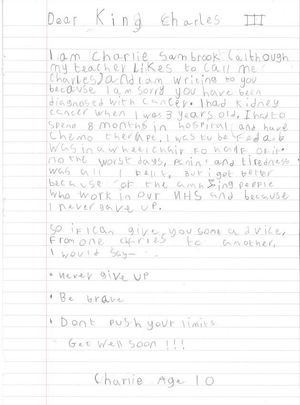 Dear King Charles III
I am Charlie Sambrook (although
my teacher Likes to Call me
Charles) and I am writing to you
because I am sorry you have been
diagnosed with Cancer. I had kidney
cancer when I was 3 years old, I had to
spend 8 months in hospital and have
Chemo therapy. I was tube fed and
was in a wheelchair
no the worst days, Pain and tiredness
was all I felt, But i got better
because of the amazing people
who work in our NHS and because
I never gave up.
so if I can give you some advice,
From one Charles to another,
I would say—
• never give up
• Be brave
• Dont Push your limits
Get Well Soon !!!
Charlie Age 10